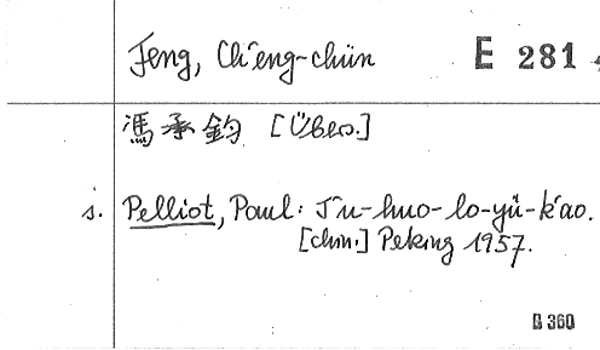 Feng, Ch'eng-chün E 281
馮承鈞 [Übers.]
s. Pelliot, Paul: T'u-huo-lo-yü-k'ao.
[chin.] Peking 1957.
B 360